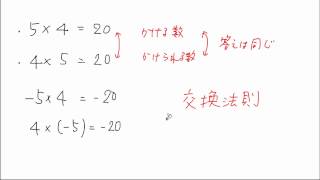 ・5 × 4 = 20
・4 × 5 = 20
かける数
かけられる数
答えは同じ
-5 × 4 = -20
4 × (-5) = -20
交換法則